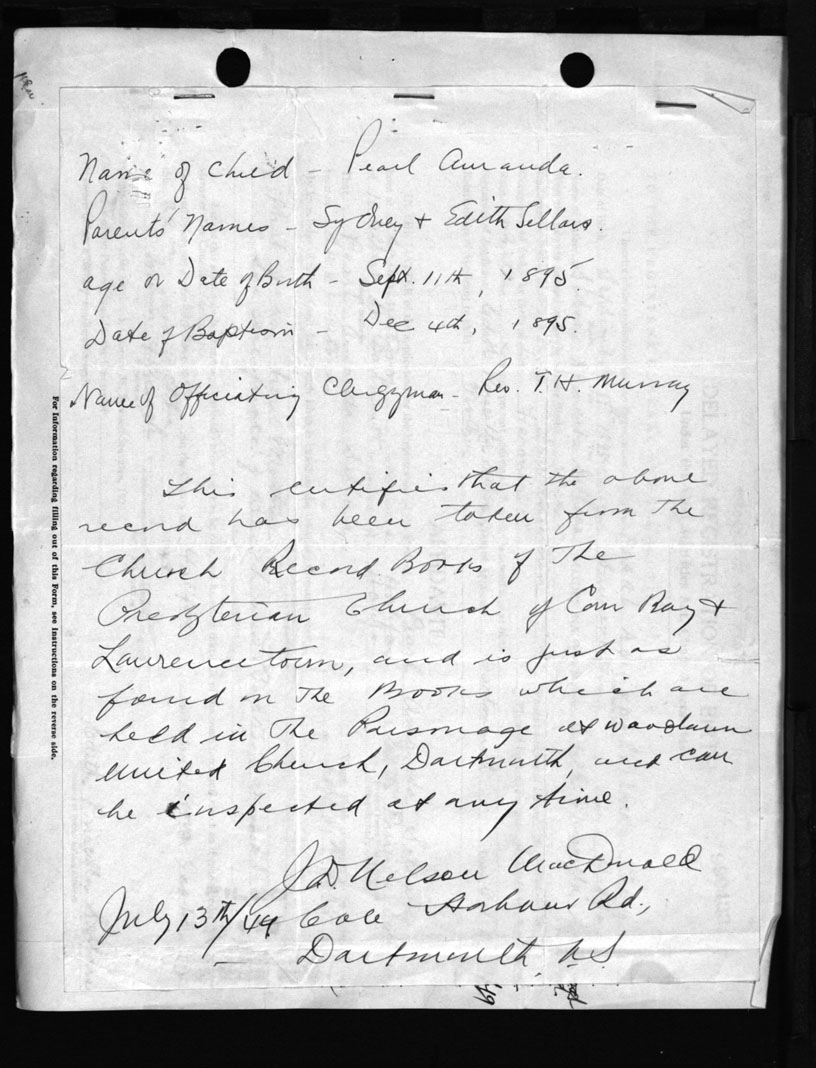 Name of Child - Pearl Amanda.
Parents' Names - Sydney & Edith Sellars.
age or Date of Birth - Sept. 11th, 1895.
Date of Baptism - Dec 4th, 1895.
Name of Officiating Clergyman - Rev. T. H. Murray
For Information regarding filling out of this Form, see Instructions on the reverse side.
This certifies that the above
record has been taken from the
Church Record Books of The
Presbyterian Church of Cow Bay &
Lawrencetown, and is just as
found in The Books which are
held in The Parsonage at Woodlawn
United Church, Dartmouth, and can
be inspected at any time.
J.D. Nelson MacDonald
July 13th/44 Cole Harbour Rd.,
Dartmouth, N.S.